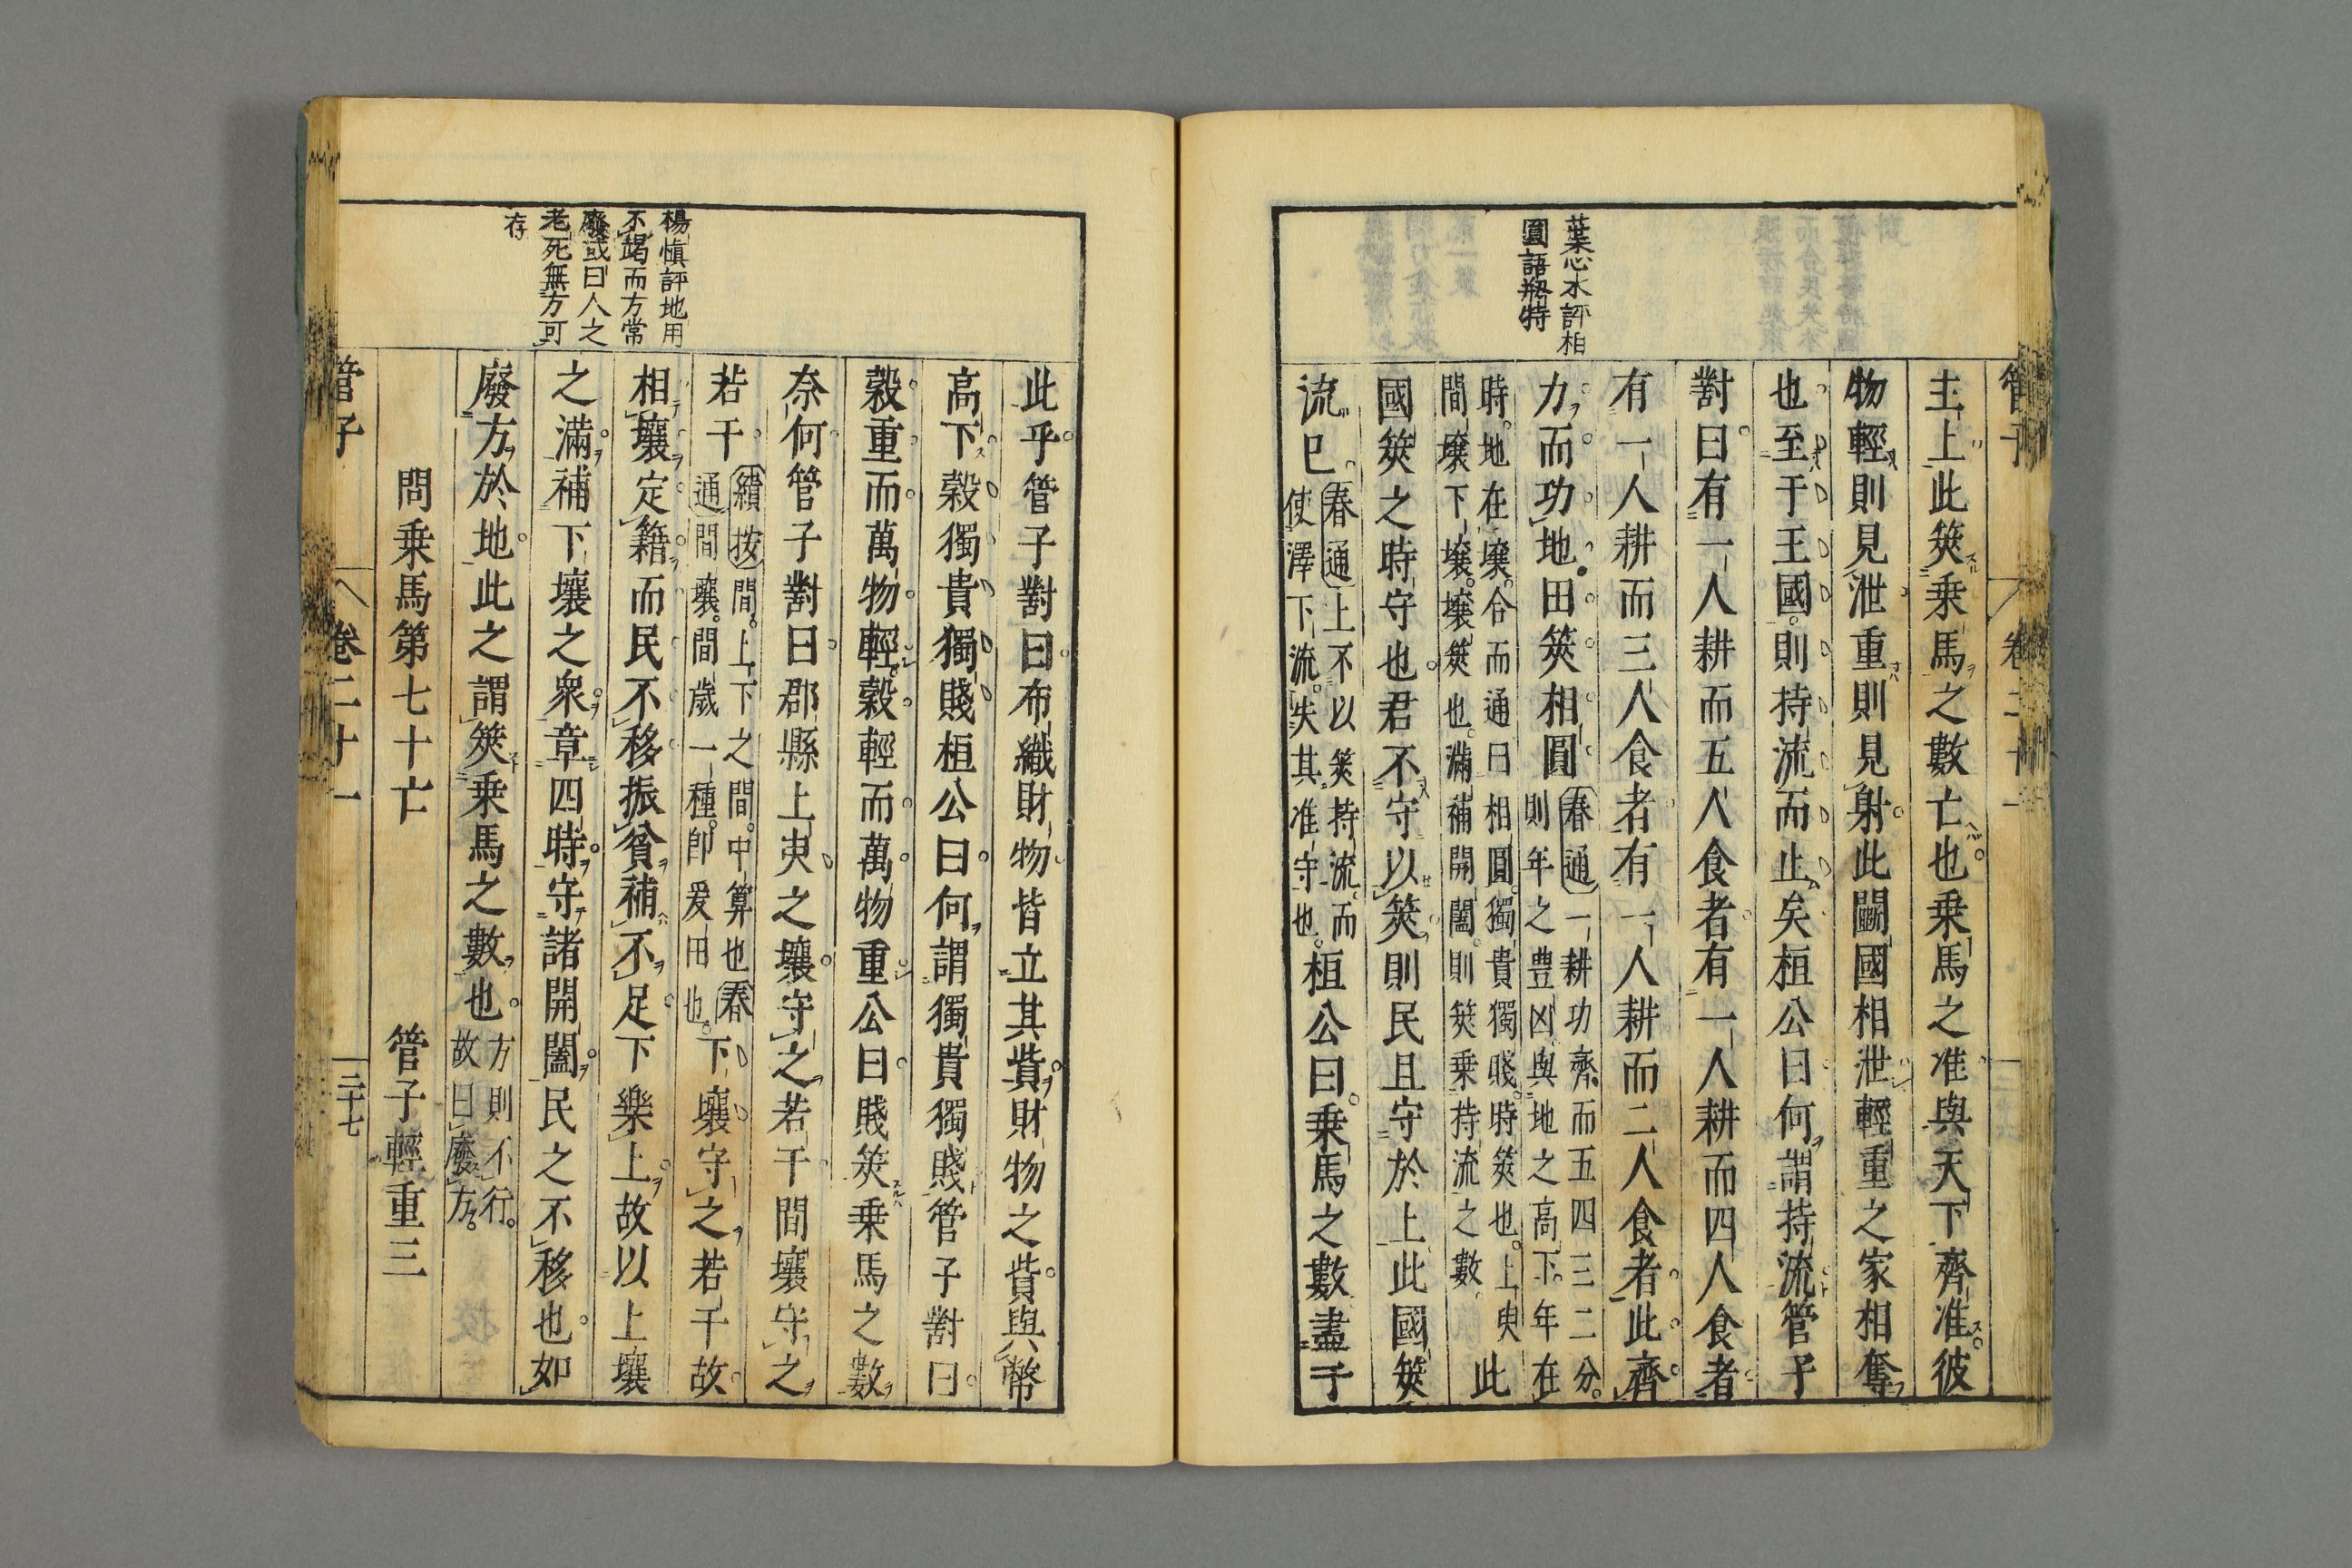 管子
卷二十一
葉心水評相
圓語殊特
主上此筴乗馬之數亡也乗馬之准與天下齊准彼
物輕則見泄重則見射此鬭國相泄輕重之家相奪
也至于王國則持流而止矣桓公曰何謂持流管子
對曰有一人耕而五人食者有一人耕而四人食者
有一人耕而三人食者有一人耕而二人食者此齊
力而功地田筴相圓
春通一耕功齊而五四三二分
則年之豊凶與地之高下年在
時地在壤合而通曰相圓獨貴獨賤時筴也上臾
間壤下壤壤筴也滿補開闔則筴乗持流之數
此
國筴之時守也君不守以筴則民且守於上此國筴
流已
春通上不以筴持流而
使澤下流失其准守也
桓公曰乗馬之數盡于
楊慎評地用
不竭而方常
廢或曰人之
老死無方可
存
此乎管子對曰布織財物皆立其貲財物之貲與幣
高下穀獨貴獨賤桓公曰何謂獨貴獨賤管子對曰
穀重而萬物輕穀輕而萬物重公曰賤筴乗馬之數
奈何管子對曰郡縣上臾之壤守之若干間壤守之
若干
續按間上下之間中算也春
通間壤間歲一種卽爰田也
下壤守之若干故
相壤定籍而民不移振貧補不足下樂上故以上壤
之滿補下壤之衆章四時守諸開闔民之不移也如
廢方於地此之謂筴乗馬之數也
方則不行
故曰廢方
問乗馬第七十亡
管子輕重三
管子
卷二十一
三十七